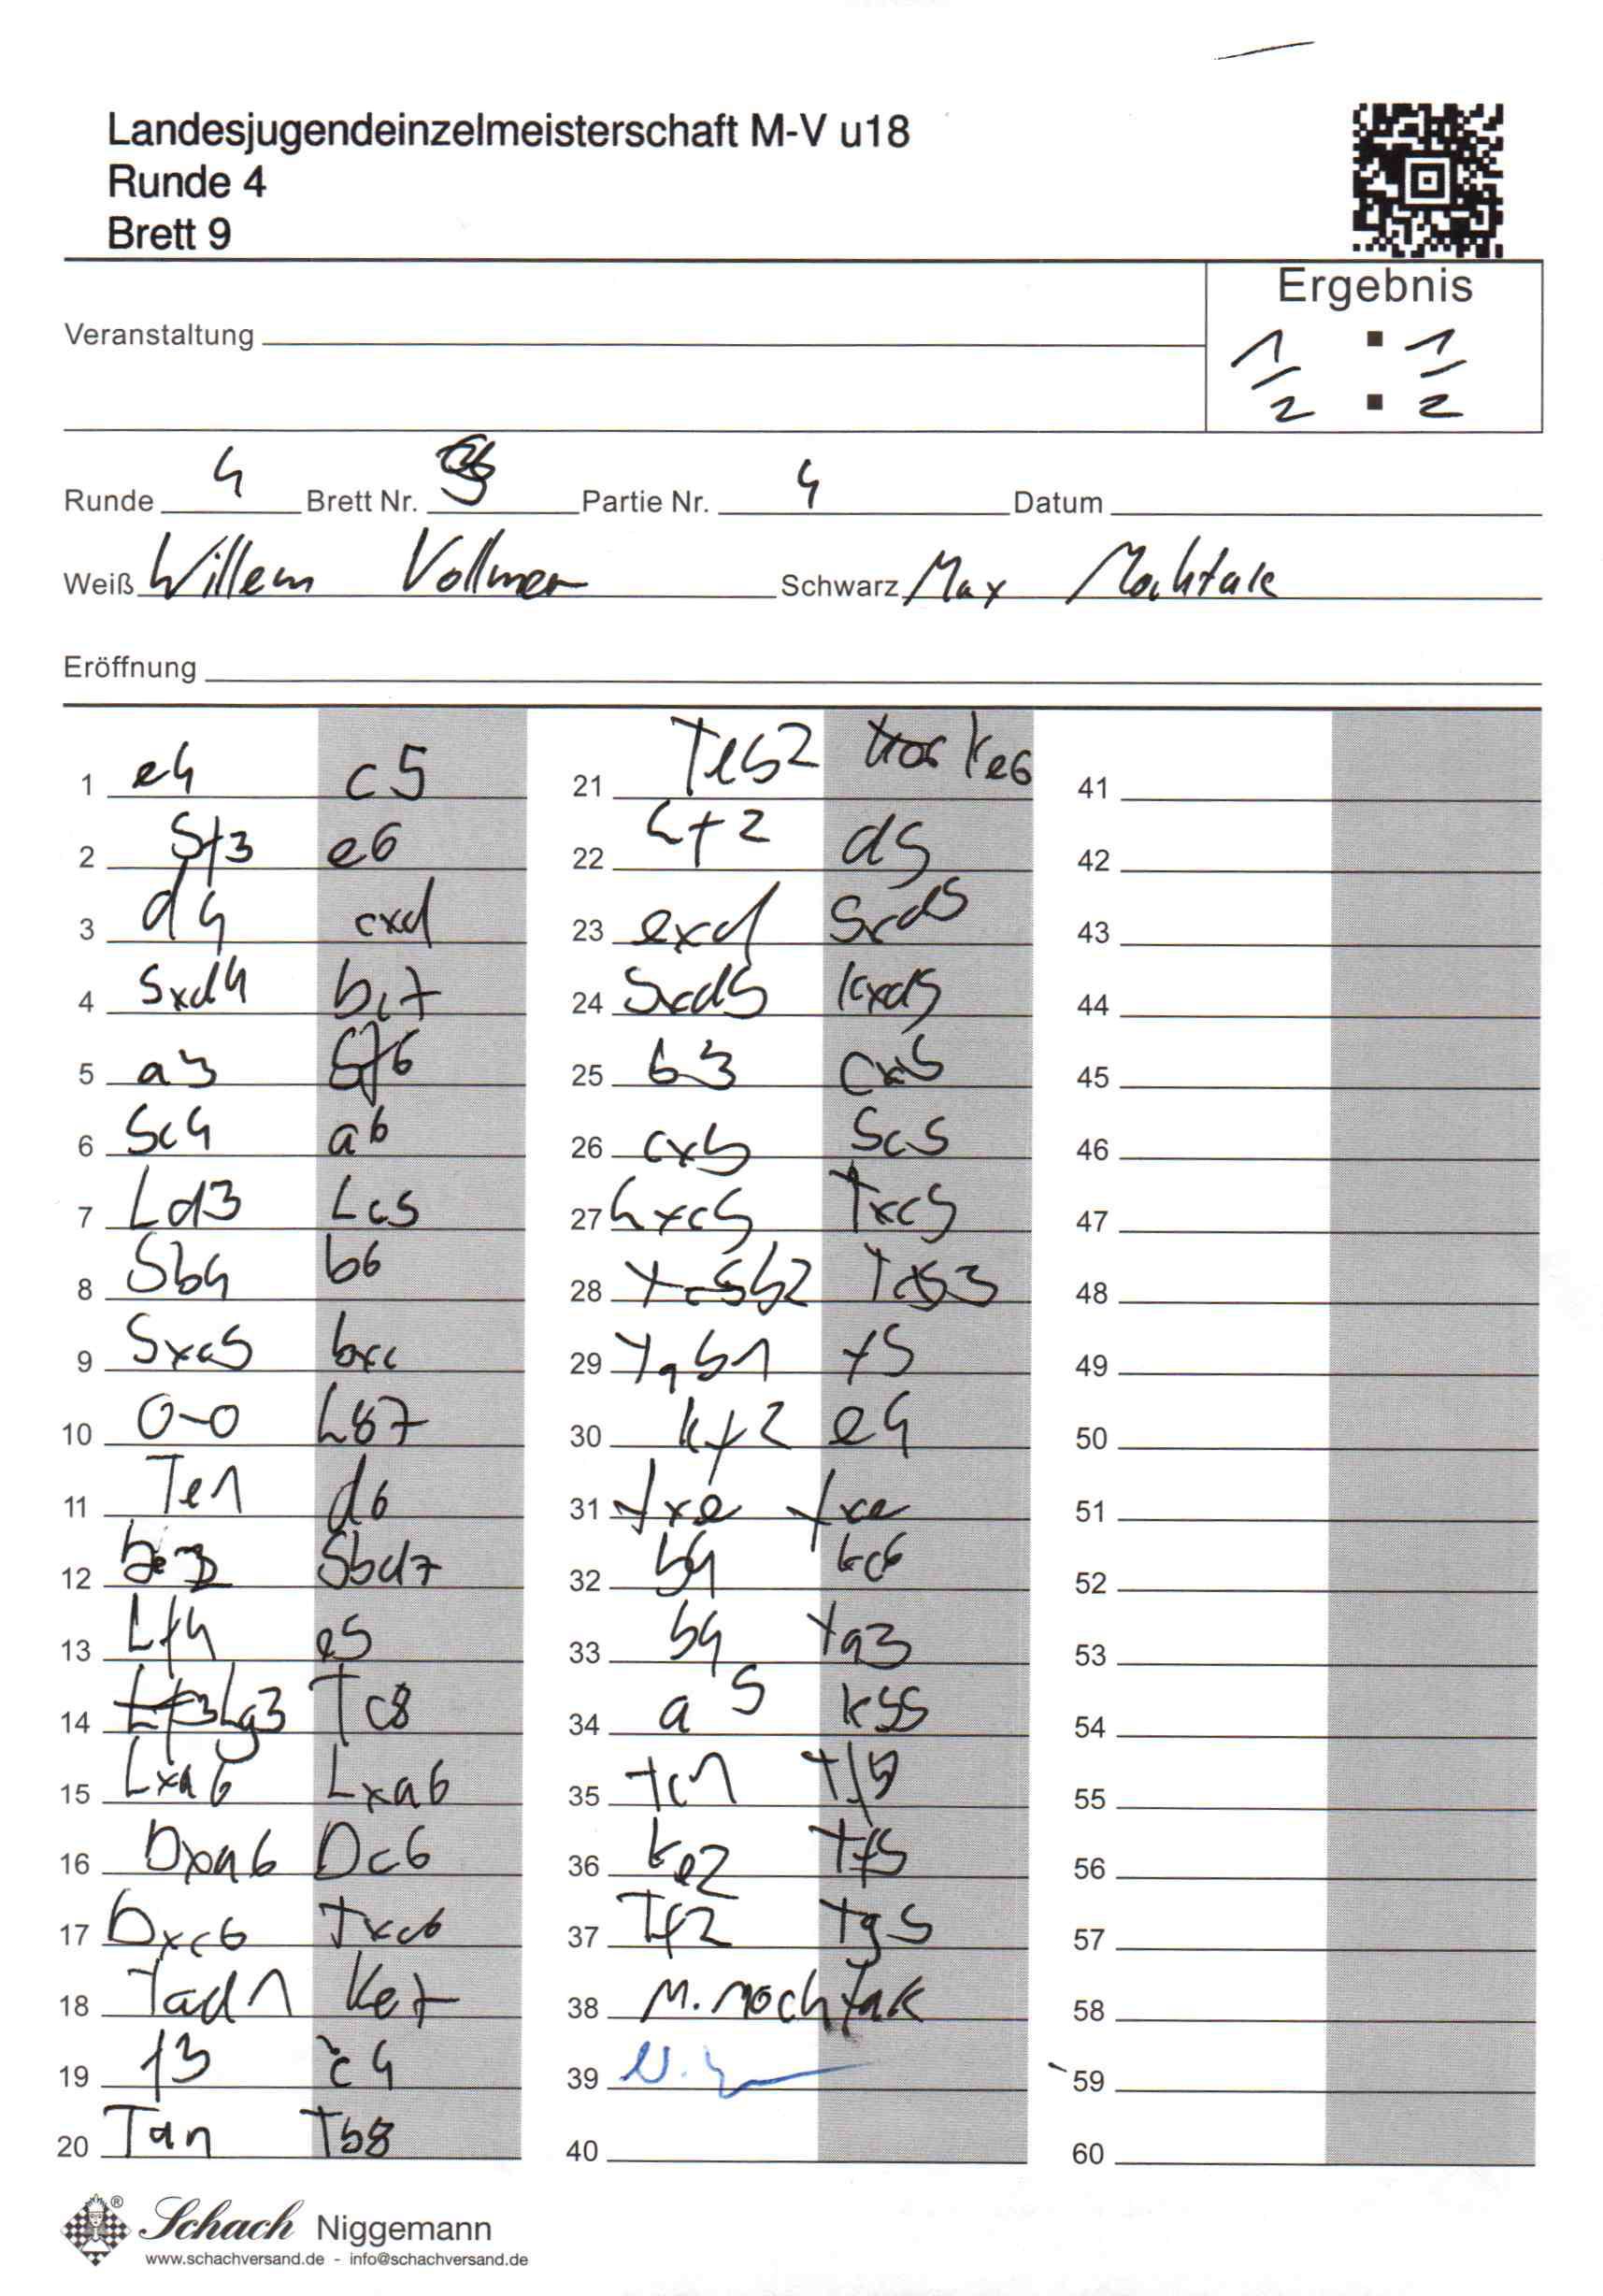 Landesjugendeinzelmeisterschaft M-V u18
Runde 4
Brett 9
Ergebnis
Veranstaltung
1/2 : 1/2
Runde 4 Brett Nr. Partie Nr. 4 Datum
Weiß Willem Vollmer Schwarz Max Mochtak
Eröffnung
1 e4 c5
2 Sf3 e6
3 d4 cxd
4 Sxd4 Dc7
5 a3 Sf6
6 Sc4 a6
7 Ld3 Lc5
8 Sb4 b6
9 Sxc5 bxc
10 0-0 Lb7
11 Te1 d6
12 De2 Sbd7
13 Lf4 e5
14 Lg3 Tc8
15 Lxa6 Lxa6
16 Dxa6 Dc6
17 Dxc6 Txc6
18 Tad1 Ke7
19 f3 c4
20 Ta1 Tb8
21 Teb2 Ke6
22 Lf2 d5
23 exd Sxd5
24 Sxd5 Kxd5
25 b3 cxb
26 cxb Sc5
27 Lxc5 Txc5
28 Tcb2 Tcb3
29 Tab1 f5
30 Kf2 e4
31 fxe fxe
32 b4 Kc6
33 b4 Ta3
34 a5 Kb5
35 Tc1 Tf8
36 Ke2 Tf5
37 Tf2 Tg5
38 M. Mochtak
39
40
41
42
43
44
45
46
47
48
49
50
51
52
53
54
55
56
57
58
59
60
Schach Niggemann
www.schachversand.de - info@schachversand.de